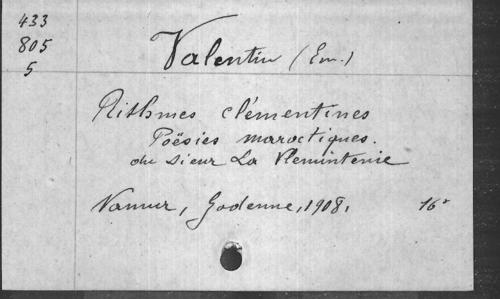 433
805
5
Valentin (Em.)
Rithmes clémentines
Poësies maroctiques.
du Sieur La Vlemintenie
Namur, Godenne, 1908.
16°